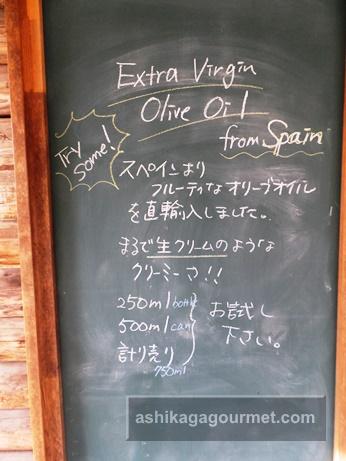 Extra Virgin
Olive Oil
from Spain
Try
Some!
スペインより
フルーティなオリーブオイル
を直輸入しました。
まるで生クリームのような
クリーミーさ!!
250ml bottle
500ml can
計り売り
750ml
お試し
下さい。
ashikagagourmet.com